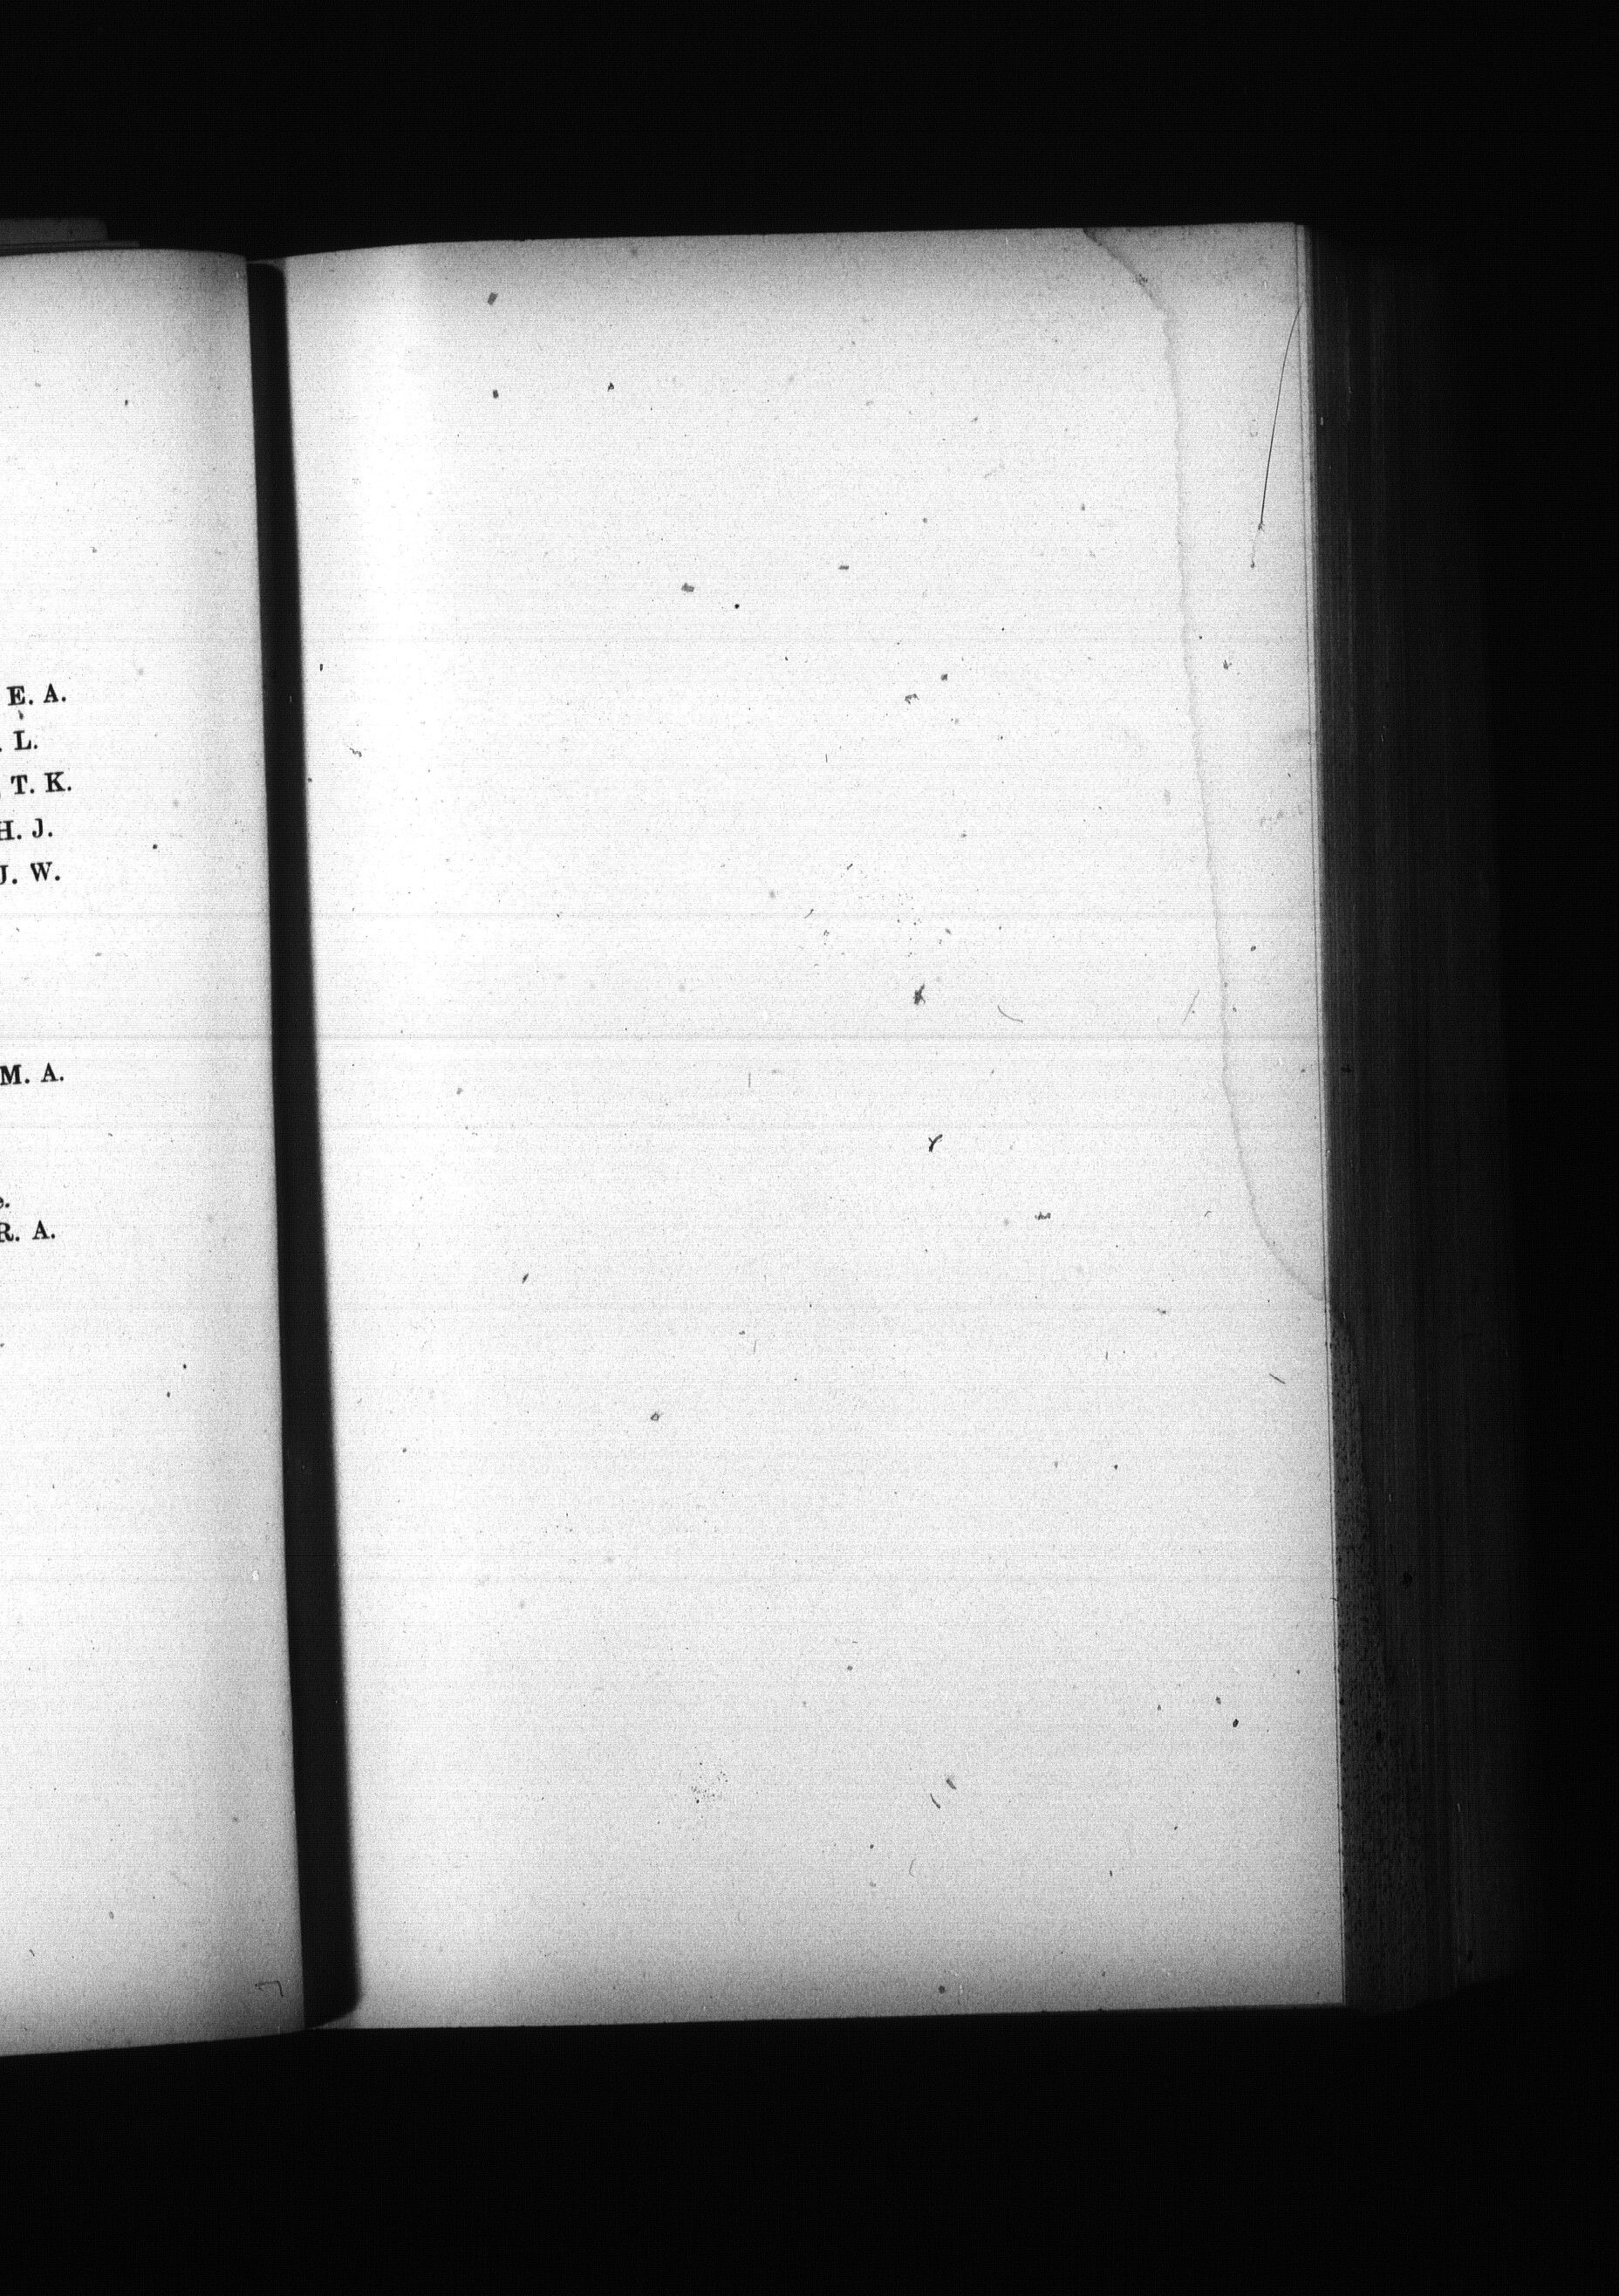 E. A.
. L.
T. K.
H. J.
J. W.
M. A.
e.
R. A.